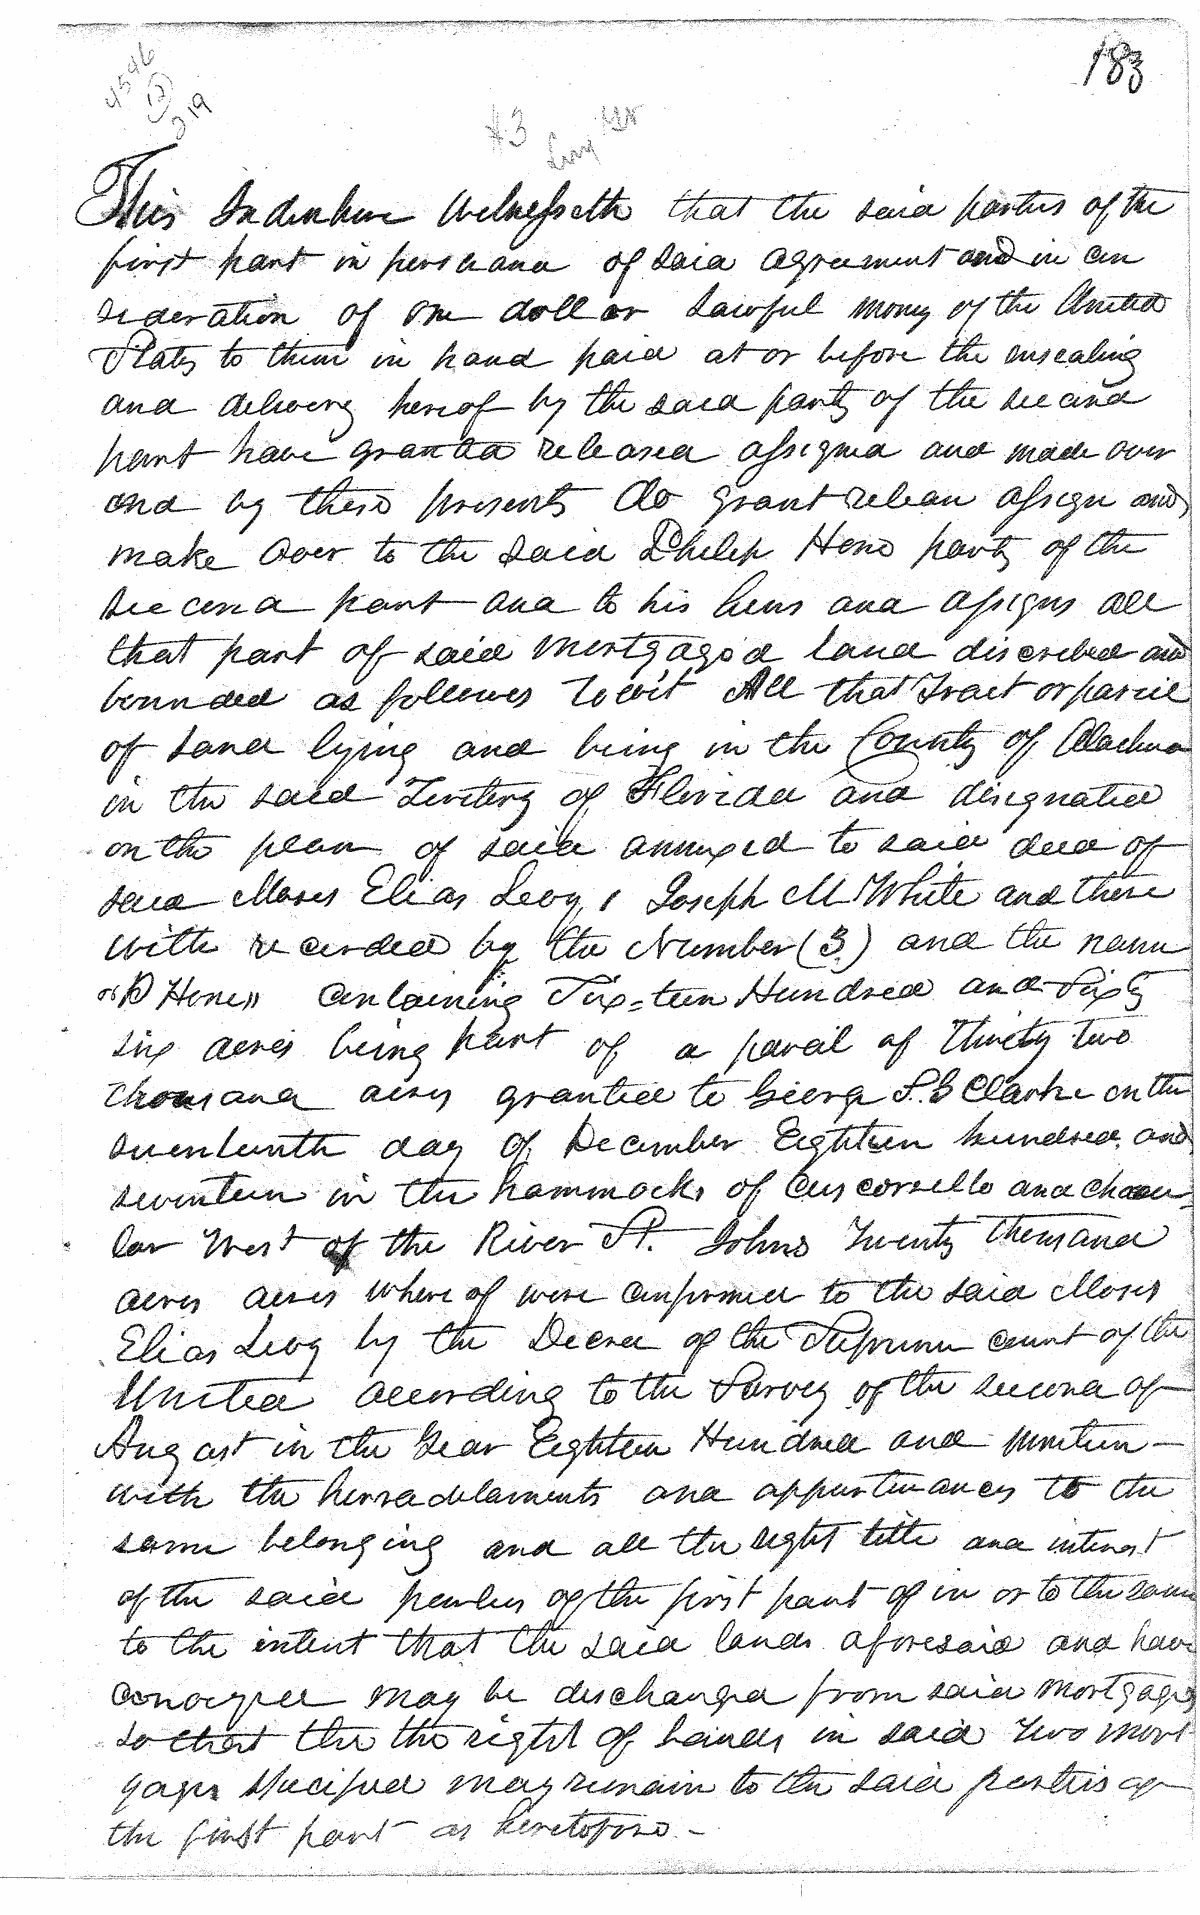 183
4546
(12)
219
#3 Levy
This Indenture Witnesseth that the said parties of the
first part in persuana of said agreement and in con
sideration of one dollar lawful money of the United
States to them in hand paid at or before the ensealing
and delivery hereof by the said party of the second
part have granted released assigned and made over
and by these presents do grant release assign and
make over to the said Philip Hone party of the
second part and to his heirs and assigns all
that part of said mortgaged land discribed and
bounded as follows Towit All that Tract or parcel
of Land lying and being in the County of Alachua
in the said Teritery of Florida and designated
on the plan of said annexed to said deed of
said Moses Elias Levy, Joseph M White and there
with recorded by the Number (3) and the name
"P Hone" containing Six=teen Hundred and Sixty
six acres being part of a parcel of Thirty two
thousand acres granted to George J. F Clarke on the
seventeenth day of December Eighteen hundred and
seventeen in the hammocks of Cuscowello and Chacu=
lar West of the River St. Johns Twenty Thousand
acres acres where of were confirmed to the said Moses
Elias Levy by the Decree of the Supreme court of the
United according to the Survey of the second of
August in the Year Eighteen Hundred and nineteen —
with the herradetaments and appurtenances to the
same belonging and all the right title and interest
of the said parties of the first part of in or to the same
to the intent that the said lands aforesaid and have
conveyed may be discharged from said mortgage,
so that the the right of lands in said Two mort
gages specified may remain to the said parties of
the first part as heretofore. —